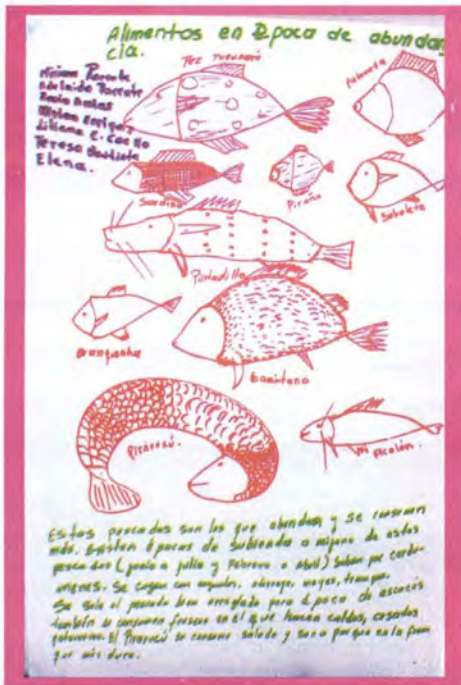 Alimentos en Epoca de abundan
cia.
Miriam Parente
Adelaida Parente
Liliana C. Coello
Teresa Bautista
Elena.
Pez Tucunaré
Palometa
Sardina
Piraña
Sabaleta
Pintadillo
Branquiña
Gamitana
Pirarucú.
Picalón.
Estos pescados son los que abundan y se consumen
más. Existen épocas de subienda o mijano de estos
pescados (junio a julio y Febrero a Abril) Suben por cardu-
menes. Se cogen con anzuelos, atarraya, mayas, trampa.
Se sala el pescado bien arreglado para época de escases
también se consumen frescos en el que hacen caldos, asados
patarascas. El Pirarucú se consume salado y seco porque en la forma
que más dura.